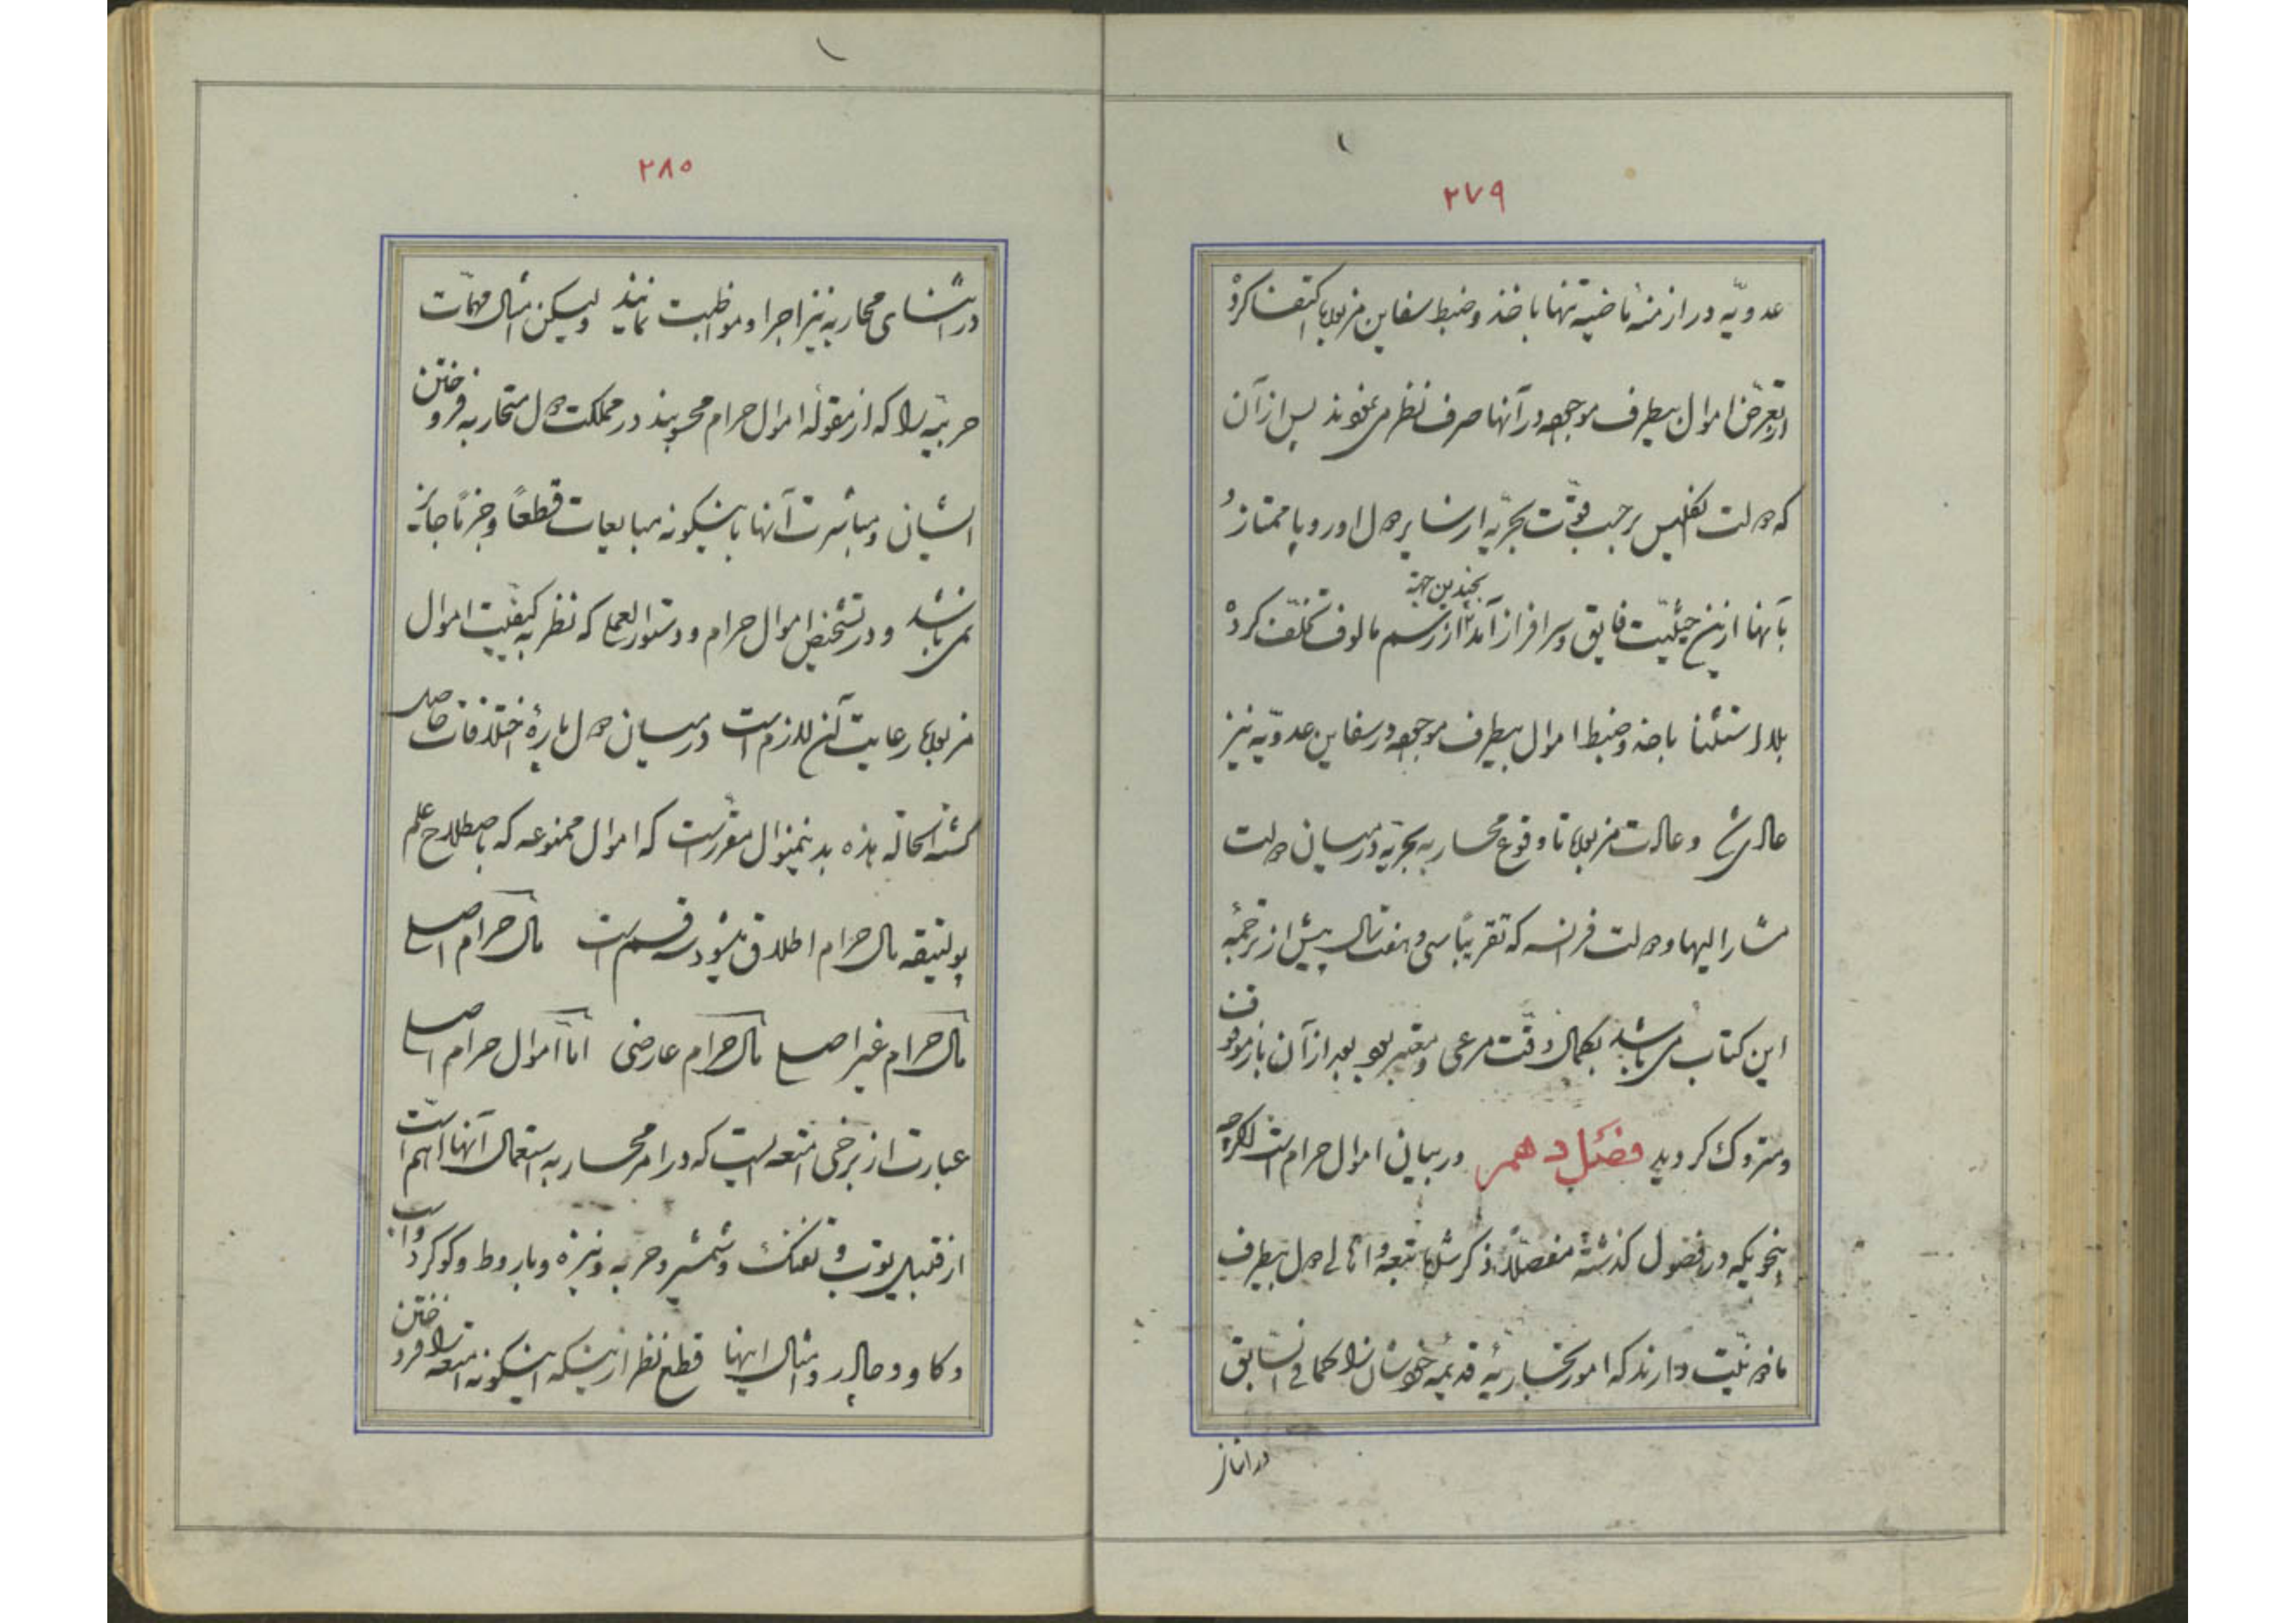 ۲۷۹
عدویّه در ازمنهٔ ماضیه تنها باخذ و ضبط سفاین مزبوره اکتفا کرده
از تعرّض اموال بیطرف موجوده در آنها صرف نظر می نمودند پس از آن
که دولت انگلیس برحسب قوّت بحریّه از سایر دول اوروپا ممتاز و
بآنها ازین حیثیّت فایق و سرافراز آمد بچندین جهة از رسم مالوف تخلّف کرده
بلا استثنا باخذ و ضبط اموال بیطرف موجوده در سفاین عدویّه نیز
عادی شد و عادت مزبوره تا وقوع محاربه بحریّه در میان دولت
مشار الیها و دولت فرانسه که تقریباً سی و هفت سال پیش از ترجمهٔ
این کتاب می باشد بکمال دقّت مرعی و معتبر بود بعد از آن باز موقوف
و متروک گردید فصل دهم در بیان اموال حرام است اگرچه
بنحویکه در فصول گذشته مفصّلاً ذکر شده تبعه و اهالی دول بیطرف
ماذونیّت دارند که امور تجاریّهٔ قدیمهٔ خودشان را کما فی السّابق
در اثنای
۲۸۰
در اثنای محاربه نیز اجرا و مواظبت نمایند ولیکن امثال مهمّات
حربیّه را که از مقولهٔ اموال حرام محسوبند در مملکت دول متحاربه فروختن
ایشان و مباشرت آنها باینگونه مبایعات قطعاً و جزماً جایز
نمی باشد و در تشخیص اموال حرام و دستورالعمل که نظر به کیفیّت اموال
مزبوره رعایت آن لازم است در میان دول پارهٔ اختلافات حاصل
گشته الحالة هذه بدینمنوال مقرّر است که اموال ممنوعه که باصطلاح علم
پولتیقه مال حرام اطلاق میشود سه قسم است مال حرام اصلی
مال حرام غیر اصلی مال حرام عارضی امّا اموال حرام اصلی
عبارت از برخی امتعه ایست که در امر محاربه استعمال آنها اهمّ است
از قبیل توپ و تفنک و شمشیر و حربه و نیزه و باروط و کوکرد و اسب
و کاو و چادر و امثال اینها قطع نظر از اینکه اینگونه امتعه را فروختن